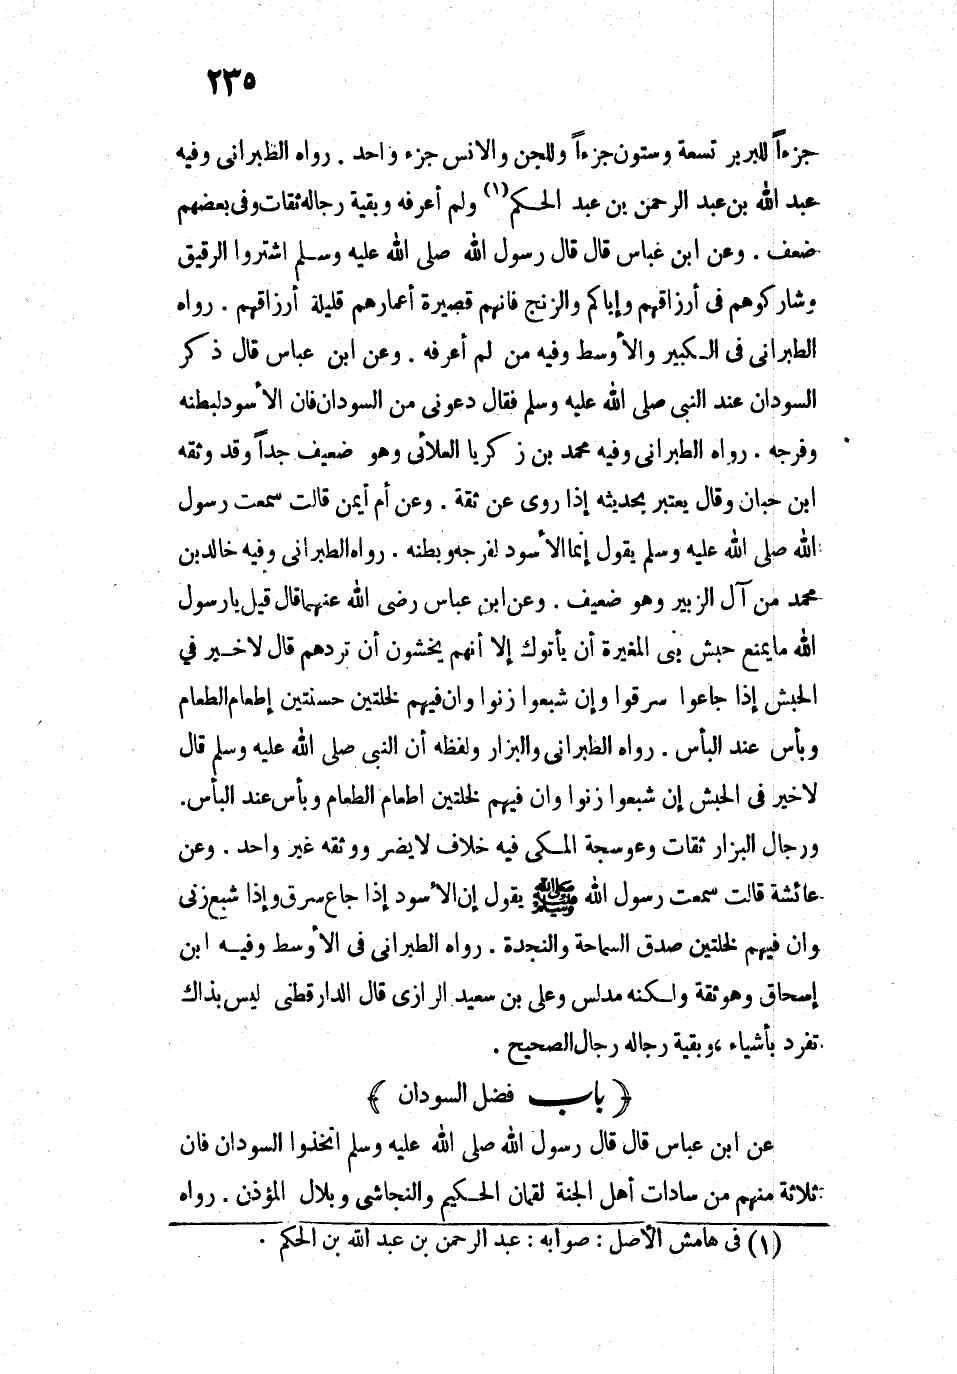 ٢٣٥
جزءاً للبربر تسعة وستون جزءاً وللجن والانس جزء واحد . رواه الطبرانى وفيه
عبد الله بن عبد الرحمن بن عبد الحكم (١) ولم أعرفه وبقية رجاله ثقات وفى بعضهم
ضعف . وعن ابن عباس قال قال رسول الله صلى الله عليه وسلم اشتروا الرقيق
وشاركوهم فى أرزاقهم وإياكم والزنج فانهم قصيرة أعمارهم قليلة أرزاقهم . رواه
الطبرانى فى الكبير والأوسط وفيه من لم أعرفه . وعن ابن عباس قال ذكر
السودان عند النبى صلى الله عليه وسلم فقال دعونى من السودان فان الأسود لبطنه
وفرجه . رواه الطبرانى وفيه محمد بن زكريا العلائى وهو ضعيف جداً وقد وثقه
ابن حبان وقال يعتبر بحديثه إذا روى عن ثقة . وعن أم أيمن قالت سمعت رسول
الله صلى الله عليه وسلم يقول إنما الأسود لفرجه وبطنه . رواه الطبرانى وفيه خالد بن
محمد من آل الزبير وهو ضعيف . وعن ابن عباس رضى الله عنهما قال قيل يارسول
الله مايمنع حبش بنى المغيرة أن يأتوك إلا أنهم يخشون أن تردهم قال لا خير في
الحبش إذا جاعوا سرقوا وإن شبعوا زنوا وان فيهم لخلتين حسنتين إطعام الطعام
وبأس عند البأس . رواه الطبرانى والبزار ولفظه أن النبى صلى الله عليه وسلم قال
لاخير فى الحبش إن شبعوا زنوا وان فيهم لخلتين اطعام الطعام وبأس عند البأس.
ورجال البزار ثقات وعوسجة المكى فيه خلاف لايضر ووثقه غير واحد . وعن
عائشة قالت سمعت رسول الله ﷺ يقول إن الأسود إذا جاع سرق وإذا شبع زنى
وان فيهم لخلتين صدق السماحة والنجدة . رواه الطبرانى فى الأوسط وفيه ابن
إسحاق وهو ثقة ولكنه مدلس وعلى بن سعيد الرازى قال الدارقطنى ليس بذاك
تفرد بأشياء ، وبقية رجاله رجال الصحيح .
﴿ باب فضل السودان ﴾
عن ابن عباس قال قال رسول الله صلى الله عليه وسلم اتخذوا السودان فان
ثلاثة منهم من سادات أهل الجنة لقمان الحكيم والنجاشى وبلال المؤذن . رواه
(١) فى هامش الأصل : صوابه : عبد الرحمن بن عبد الله بن الحكم .